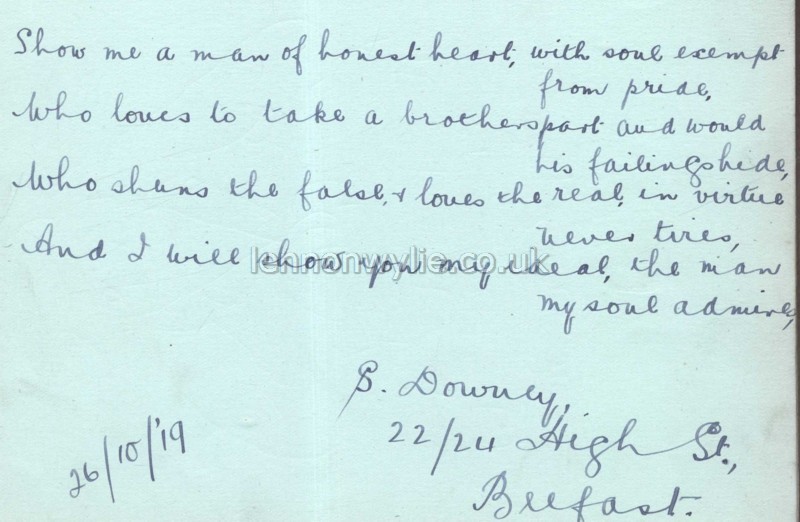 Show me a man of honest heart, with soul exempt
from pride,
Who loves to take a brothers part and would
his failings hide,
Who shuns the false, & loves the real, in virtue
never tires,
And I will show you my ideal, the man
my soul admires,
lennonwylie.co.uk
S. Downey,
22/24 High St.,
Belfast.
26/10/'19